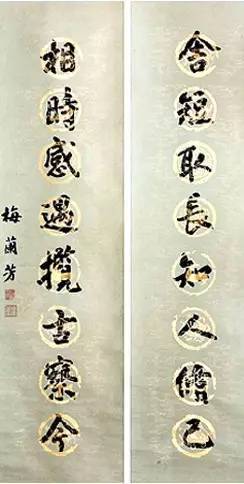 舍短取長知人己
相時感遇攬古察今
梅蘭芳